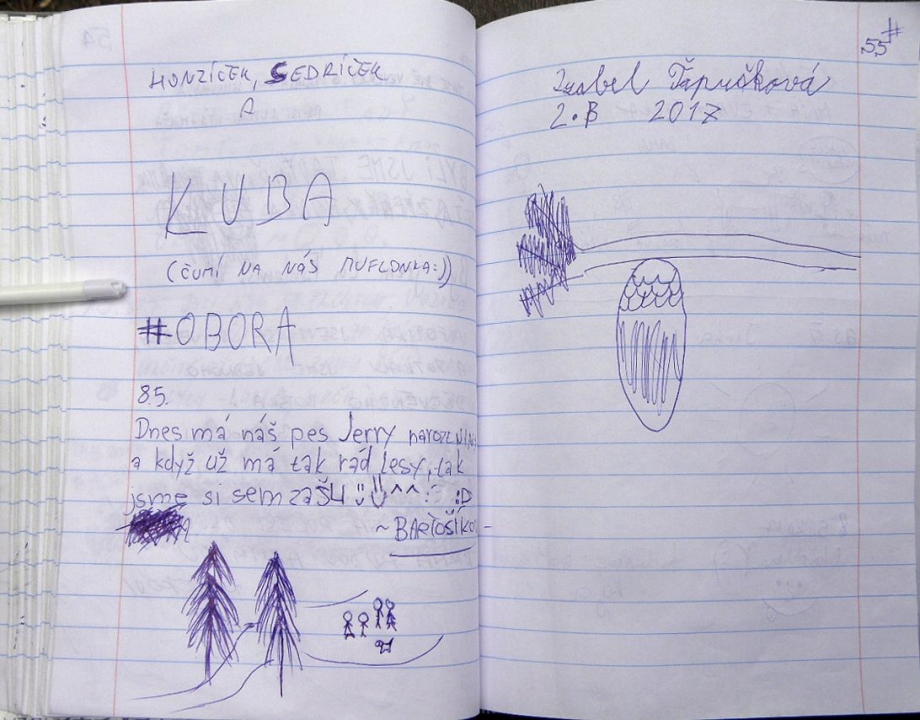 HONZÍČEK, SEDRÍČEK
A
KUBA
(ČUMÍ NA NÁS MUFLONKA:))
#OBORA
8.5.
Dnes má náš pes Jerry
a když už má tak rád lesy, tak
jsme si sem zašli ^^ :D
55 #
Izabel Ťápušková
2.B 2017